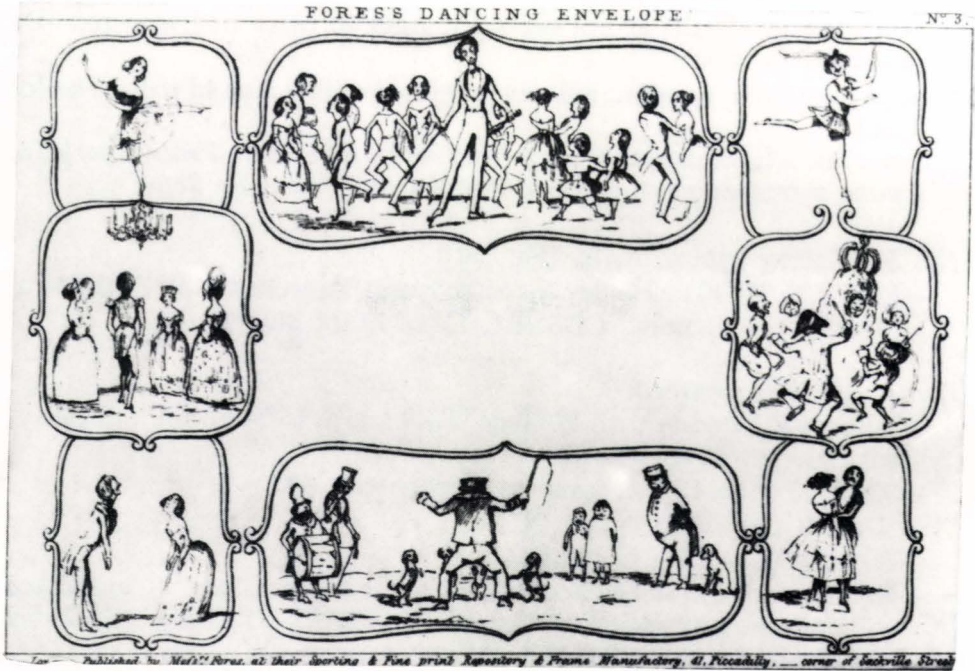 FORES'S DANCING ENVELOPE
No 3.
Published by Messrs Fores, at their Sporting & Fine print Repository & Frame Manufactory, 41, Piccadilly, corner of Sackville Street